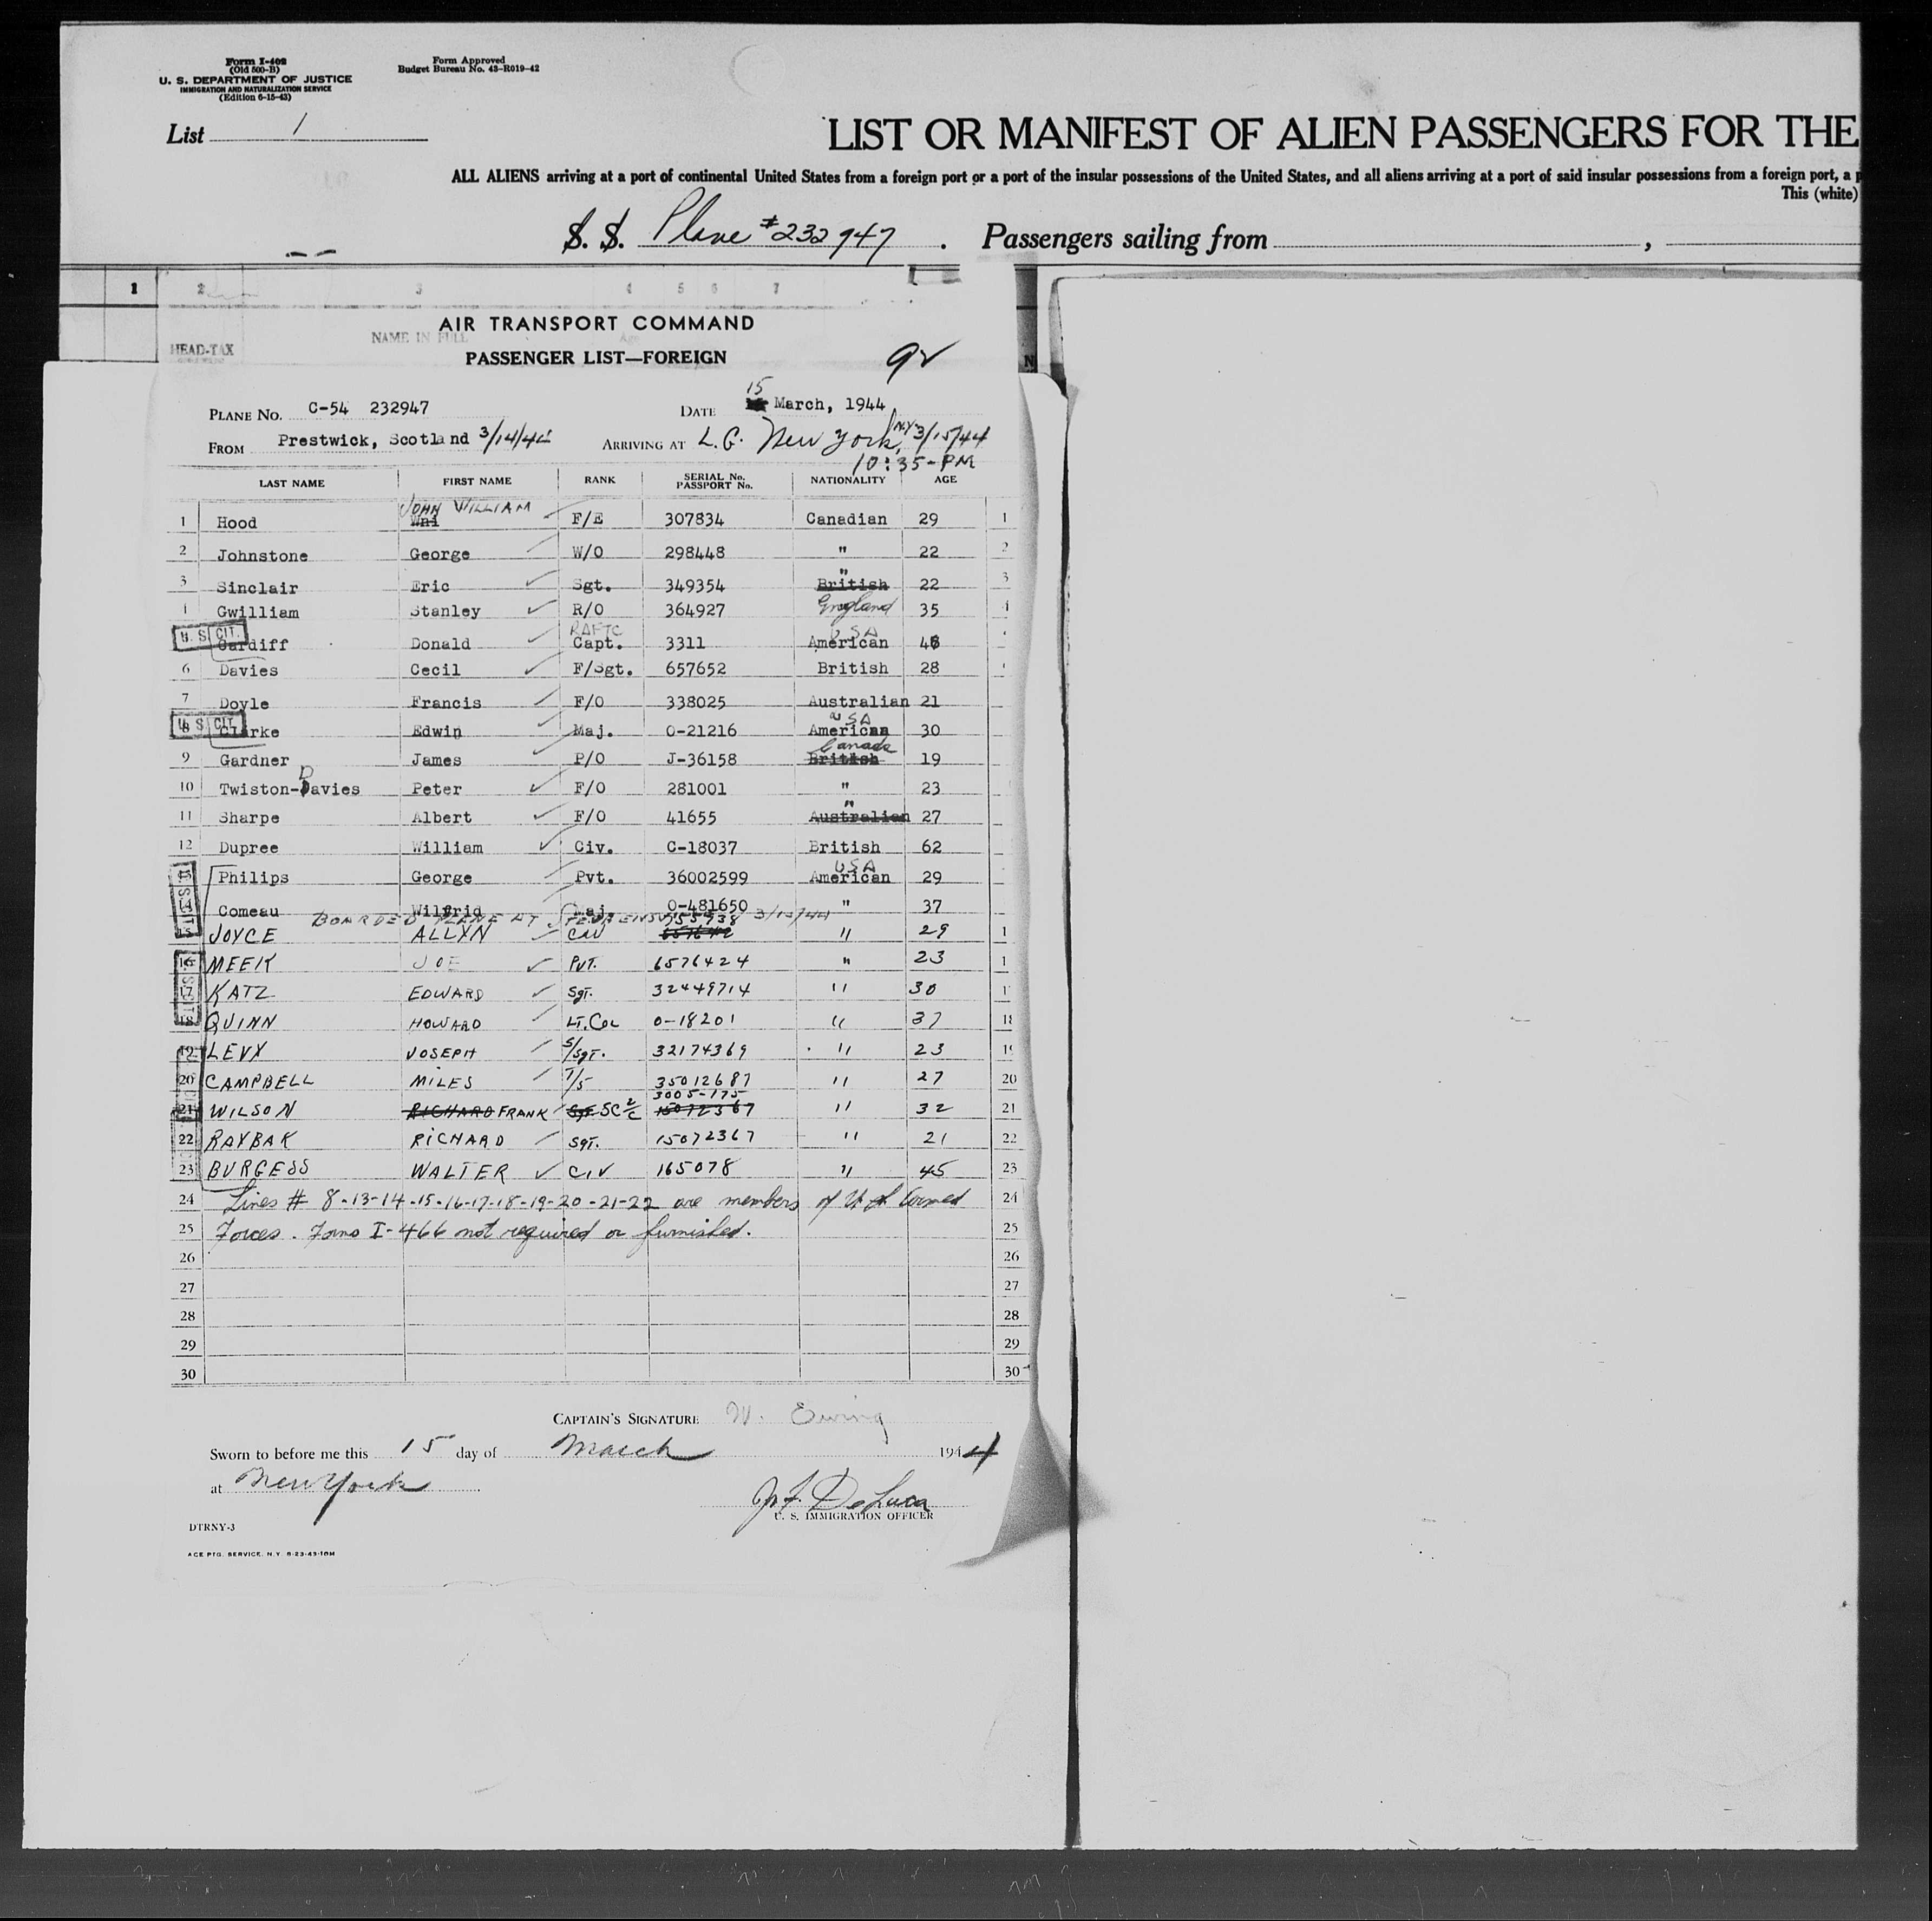 Form I-402
(Old 500-B)
U. S. DEPARTMENT OF JUSTICE
IMMIGRATION AND NATURALIZATION SERVICE
(Edition 6-15-43)
Form Approved
Budget Bureau No. 43-R019-42
List 1
LIST OR MANIFEST OF ALIEN PASSENGERS FOR THE
ALL ALIENS arriving at a port of continental United States from a foreign port or a port of the insular possessions of the United States, and all aliens arriving at a port of said insular possessions from a foreign port, a p
This (white)
S. S. Plane #232947 . Passengers sailing from ,
1 2 3 4 5 6 7
AIR TRANSPORT COMMAND
HEAD-TAX NAME IN FULL Age
PASSENGER LIST—FOREIGN
PLANE No. C-54 232947 DATE 15 March, 1944
FROM Prestwick, Scotland 3/14/44 ARRIVING AT L.G. New York, N.Y. 3/15/44
10:35-PM
LAST NAME FIRST NAME RANK SERIAL No. PASSPORT No. NATIONALITY AGE
1 Hood Wni JOHN WILLIAM F/E 307834 Canadian 29 1
2 Johnstone George W/O 298448 " 22 2
3 Sinclair Eric Sgt. 349354 British " 22 3
Gwilliam Stanley R/O 364927 England 35 4
U. S. CIT. Cardiff Donald RAFTC Capt. 3311 American USA
6 Davies Cecil F/Sgt. 657652 British 28
7 Doyle Francis F/O 338025 Australian 21
8 U. S. CIT. Clarke Edwin Maj. O-21216 American USA 30
9 Gardner James P/O J-36158 British Canada 19
10 Twiston-Davies Peter F/O 281001 " 23
11 Sharpe Albert F/O 41655 Australian " 27
12 Dupree William Civ. C-18037 British 62
13 Philips George Pvt. 36002599 American USA 29
14 Comeau Wilfrid Maj. O-481650 " 37
BOARDED PLANE AT 3/15/44
15 JOYCE ALLYN CIV " 29
16 MEEK JOE PVT. 6576424 " 23
17 KATZ EDWARD SgT. 32449714 " 30
18 QUINN HOWARD LT. COL 0-18201 " 37 18
19 LEVY JOSEPH S/SgT. 32174369 " 23 19
20 CAMPBELL MILES T/5 35012687 " 27 20
21 WILSON RICHARD FRANK SgT. SC 2/C 15072367 3005-175 " 32 21
22 RAYBAK RICHARD SgT. 15072367 " 21 22
23 BURGESS WALTER CIV 165078 " 45 23
24 Lines # 8-13-14-15-16-17-18-19-20-21-22 are members of U.S. Armed 24
25 Forces. Forms I-466 not required or furnished. 25
26 26
27 27
28 28
29 29
30 30
CAPTAIN'S SIGNATURE W. Ewing
Sworn to before me this 15 day of March 1944
at New York
J. F. DeLuca
U. S. IMMIGRATION OFFICER
DTRNY-3
ACE PTG. SERVICE, N.Y. 8-23-43-10M